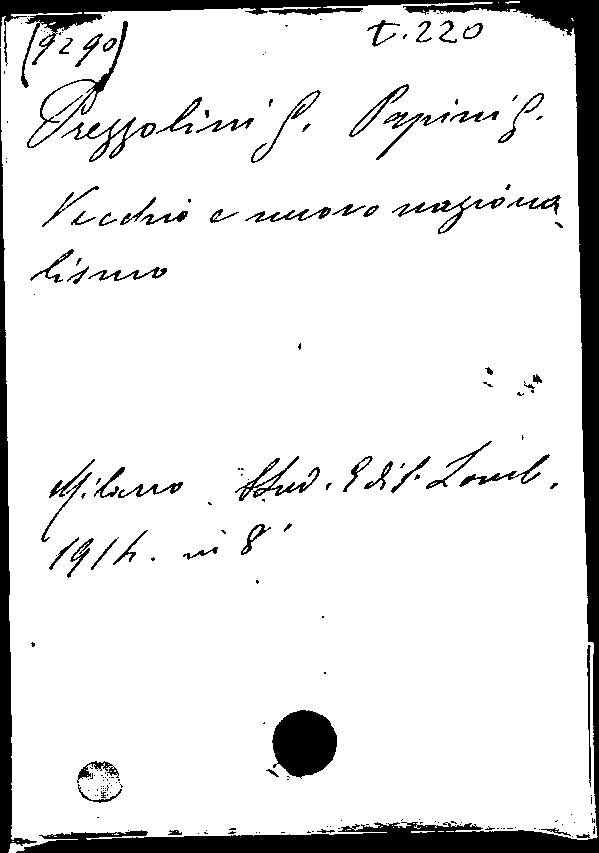 (9290) t.220
Prezzolini G. Papini G.
Vecchio e nuovo naziona
lismo
Milano Stud. Edit. Lomb.
1914. in 8°